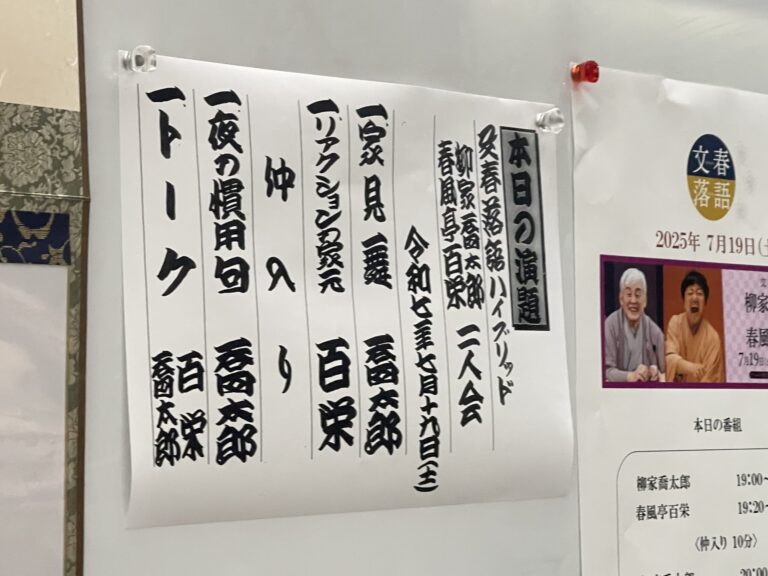 本日の演題
文春落語ハイブリッド
柳家喬太郎
春風亭百栄 二人会
令和七年七月十九日(土)
一、家見舞 喬太郎
一、リアクションの家元 百栄
仲入り
一、夜の慣用句 喬太郎
一、トーク 百栄
喬太郎
文春落語
2025年 7月19日(土
柳家
春風
7月19日
本日の番組
柳家喬太郎 19:00~
春風亭百栄 19:20~
〈仲入り 10分〉
20:00